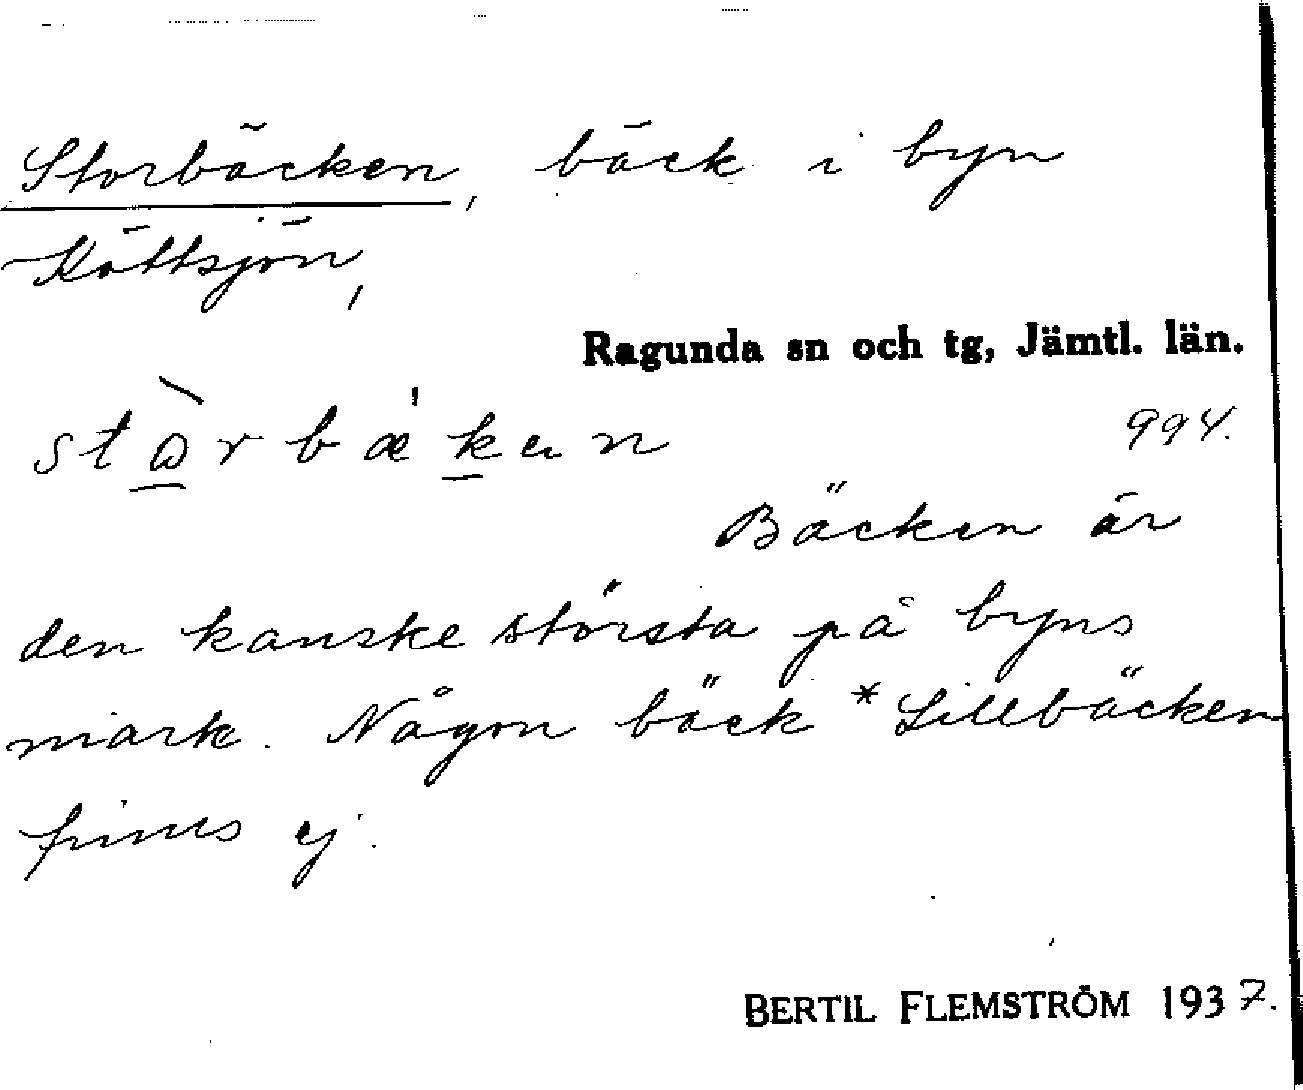 Storbäcken, bäck i byn
Köttsjön,
Ragunda sn och tg, Jämtl. län.
994.
Bäcken är
den kanske största på byns
mark. Någon bäck *Lillbäcken
finns ej.
BERTIL FLEMSTRÖM 1937.